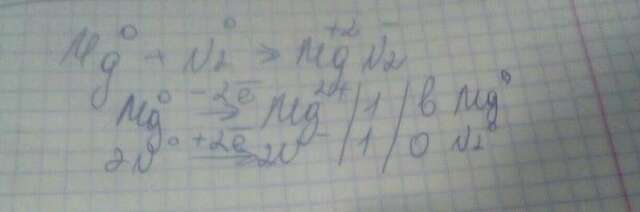 Mg⁰ + N₂⁰ > Mg⁺² N₂⁻
Mg⁰ −2ē → Mg²⁺ | 1 | в Mg⁰
2N⁰ +2ē → 2N⁻ | 1 | о N₂⁰